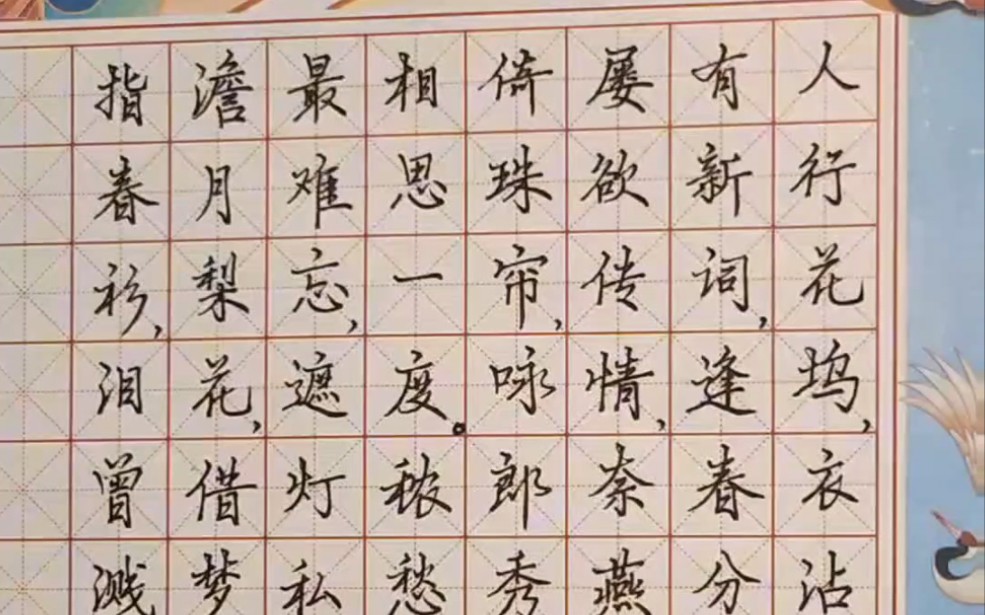 人行花坞，衣沾
有新词，逢春分
屡欲传情，奈燕
倚珠帘，咏郎秀
相思一度。秾愁
最难忘，遮灯私
澹月梨花，借梦
指春衫，泪曾溅